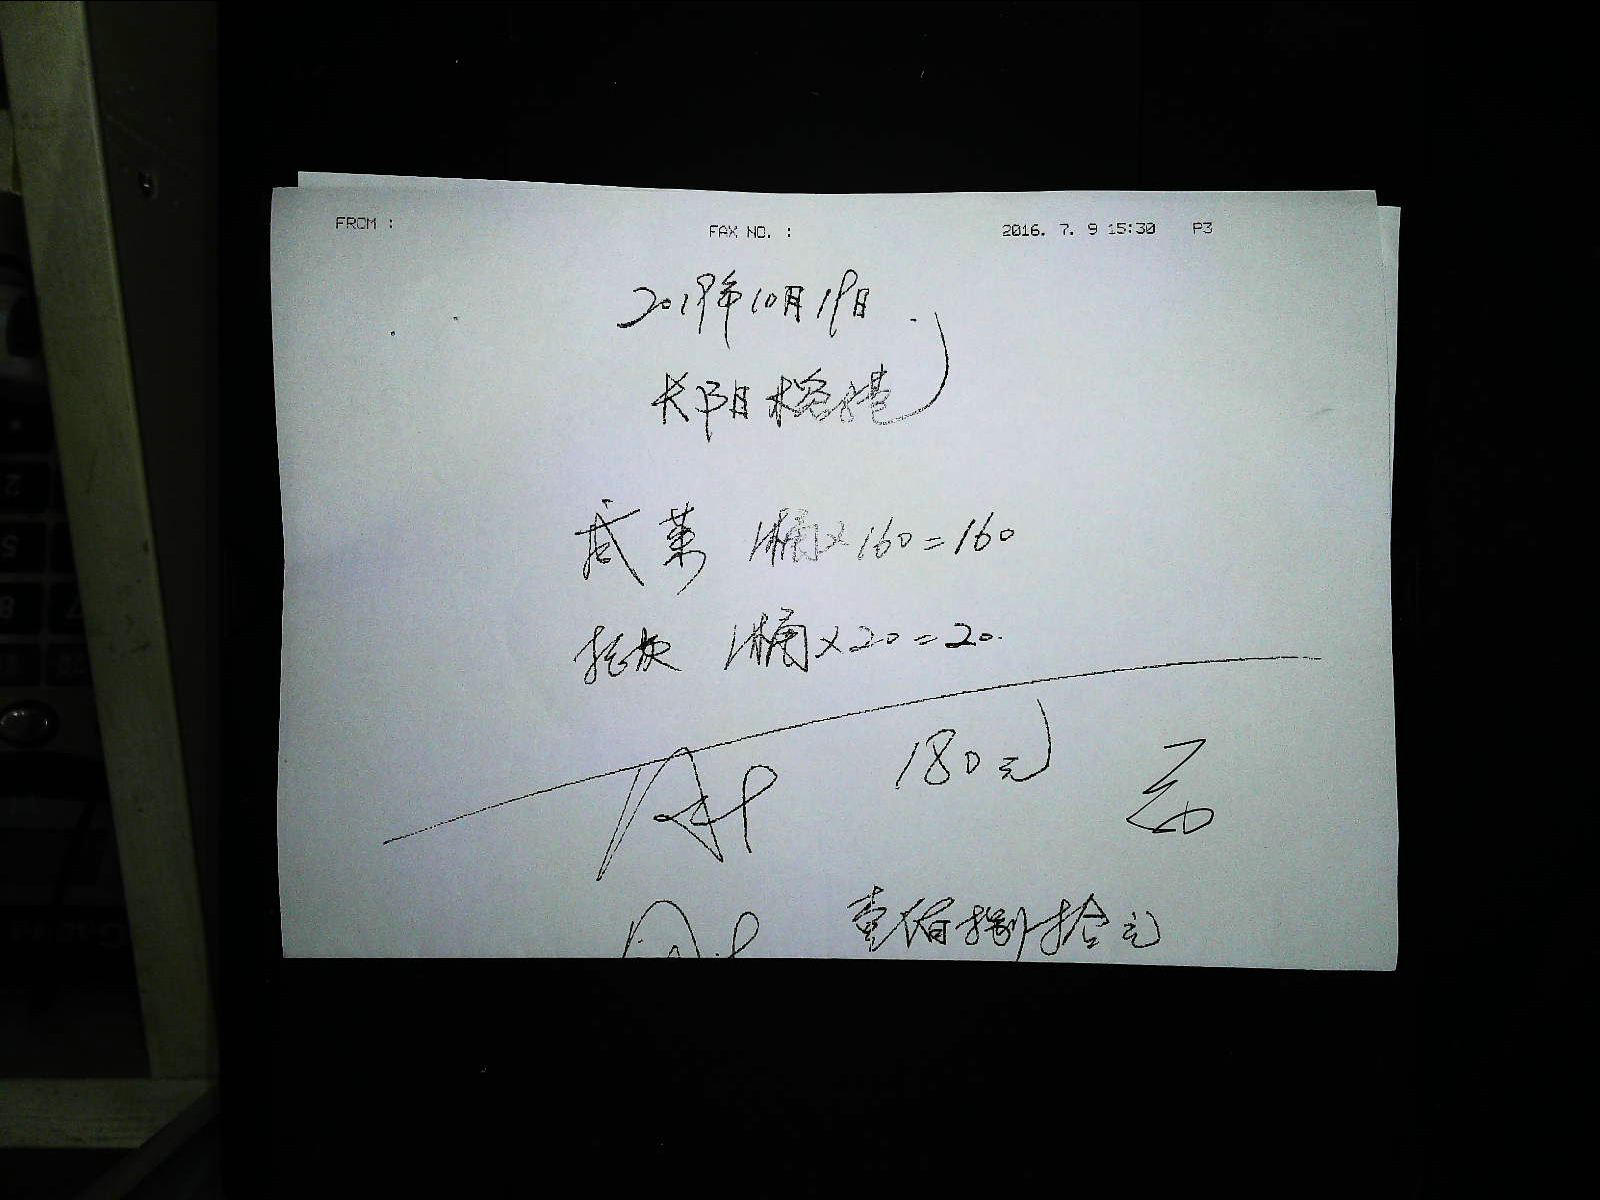 FROM :
FAX NO. :
2016. 7. 9 15:30 P3
2019年10月19日
长阳榕港
咸菜 1桶×160=160
1桶×20=20.
180元
壹佰捌拾元